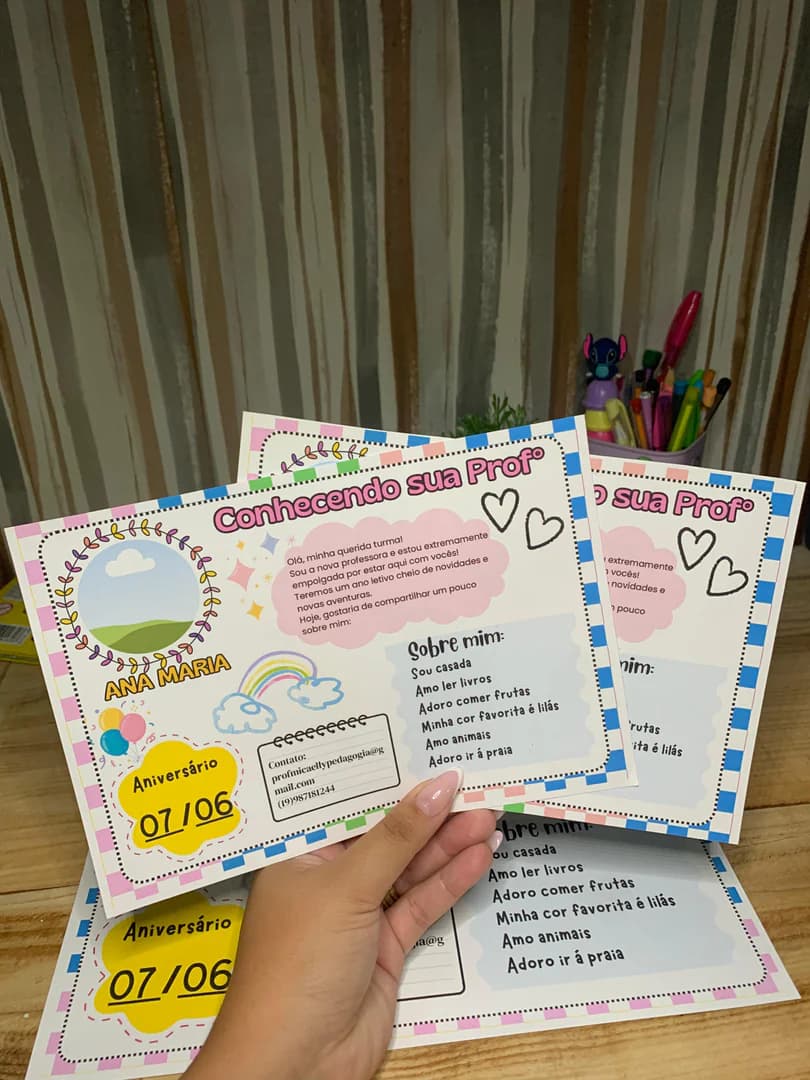 Conhecendo sua Profº
Olá, minha querida turma!
Sou a nova professora e estou extremamente
empolgada por estar aqui com vocês!
Teremos um ano letivo cheio de novidades e
novas aventuras.
Hoje, gostaria de compartilhar um pouco
sobre mim:
ANA MARIA
Sobre mim:
Sou casada
Amo ler livros
Adoro comer frutas
Minha cor favorita é lilás
Amo animais
Adoro ir á praia
Contato:
profmicaellypedagogia@g
mail.com
(19)987181244
Aniversário
07/06
o sua Profº
extremamente
vocês!
novidades e
pouco
mim:
rutas
ita é lilás
bre mim:
ou casada
Amo ler livros
Adoro comer frutas
Minha cor favorita é lilás
Amo animais
Adoro ir á praia
ia@g
Aniversário
07/06